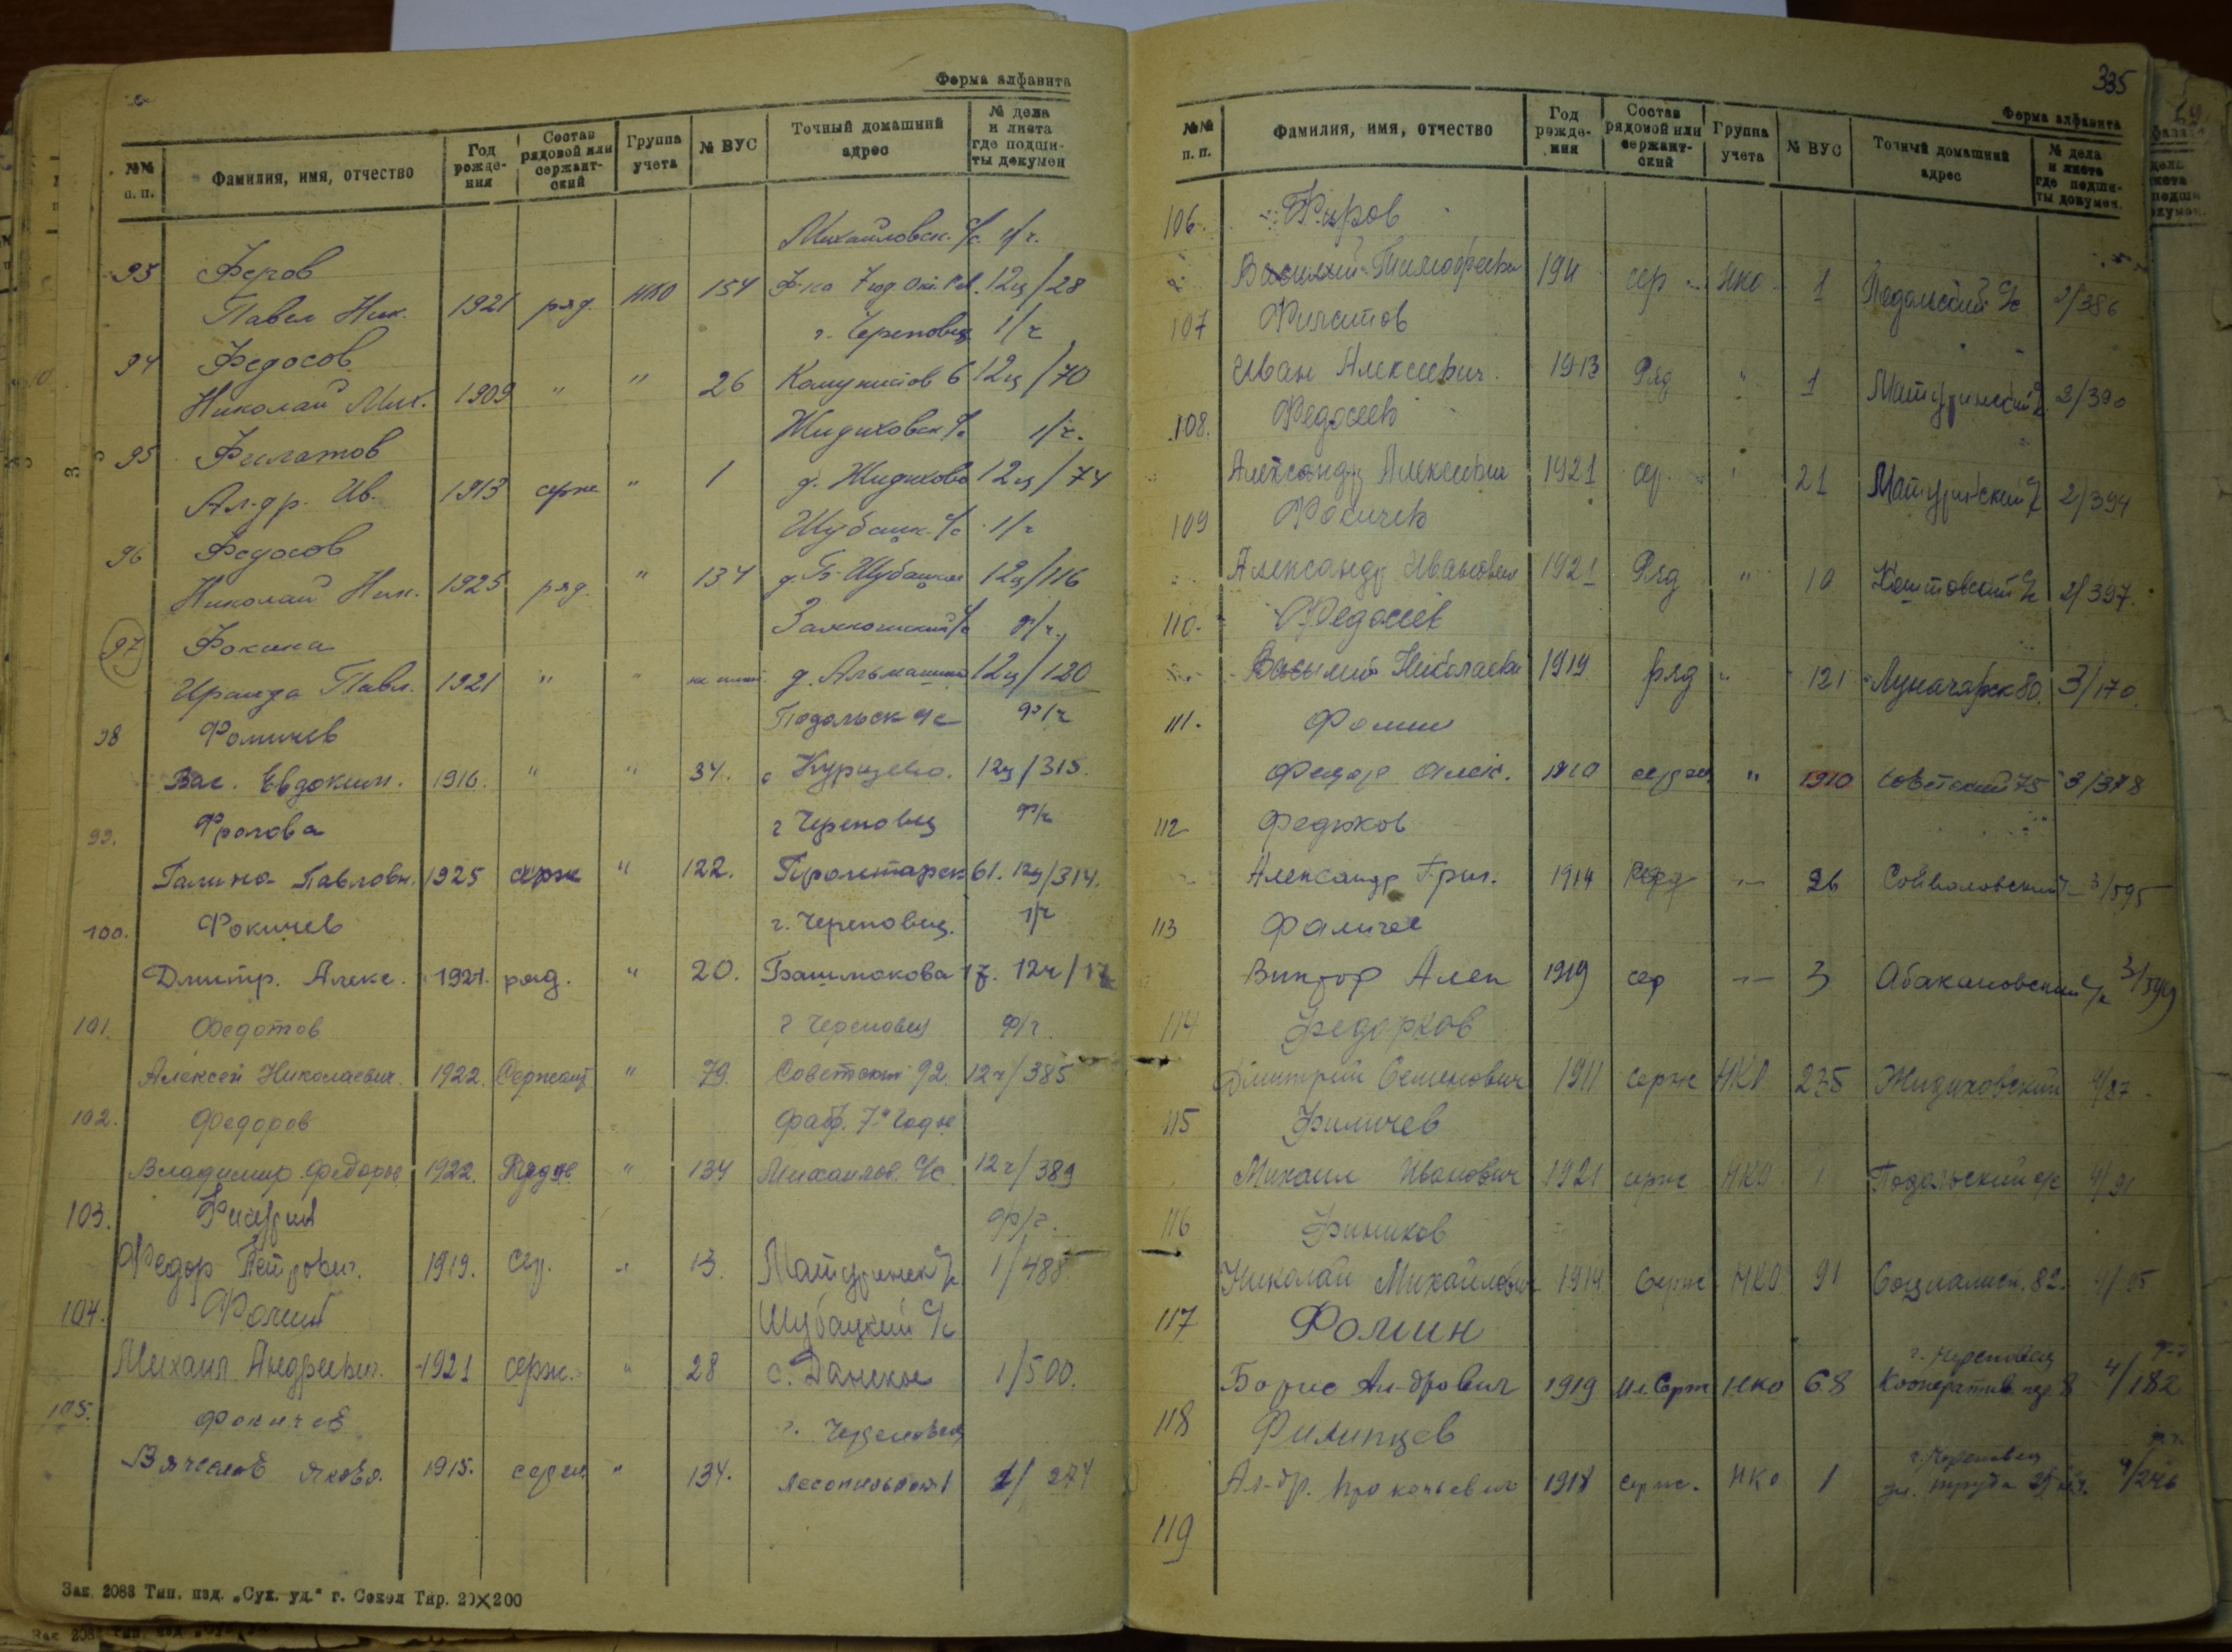 Форма алфавита
№№ п. п. Фамилия, имя, отчество Год рождения Состав рядовой или сержантский Группа учета № ВУС Точный домашний адрес № дела и листа где подшиты докумен
Михайловск. с/с
93 Феров
Павел Ник. 1921 ряд. НКО 154 Ф-ка 12ц/28
г. Череповец 1/ч
94 Федосов
Николай Мих. 1909 " " 26 Комунистов 6 12ц/70
Жидиховск с/с 1/ч.
95 Филатов
Ал-др. Ив. 1913 серж " 1 д. Жидихово 12ц/74
Шубацк. с/с 1/ч
96 Федосов
Николай Ник. 1925 ряд. " 134 д. Б-Шубацкое 12ц/116
97 Фокина
Ираида Павл. 1921 " " 12ц/120
Подольск с/с ф/ч
98 Фомичев
Вас. Евдоким. 1916. " " 34. с Курицево. 12ц/315.
99. Фролова г Череповец ф/ч
Галина Павловн. 1925 серж " 122. Пролетарск 61. 12ц/314.
100. Фокичев г. Череповец. 1/ч
Дмитр. Алекс. 1921. ряд. " 20. Башмакова 17. 12ч/
101. Федотов г Череповец ф/ч
Алексей Николаевич. 1922. Сержант " 79. Советский 92. 12ч/385
102. Федоров Фабр. 7я Годов
Владимир Федоров 1922. Рядов " 134 Михайлов. с/с 12ч/389
103. ф/ч.
Федор Петрович. 1919. сер. " 13. Матуринск с/с 1/488
104. Фомин Шубацкий с/с
Михаил Андреевич. 1921 серж. " 28 с. Данское 1/500.
105. Фокичев г. Череповец
Вячеслав Яковл. 1915. " 134. 274
Зак. 2088 Тип. изд. „Сух. уд." г. Сокол Тир. 20×200
335
Форма алфавита
№№ п. п. Фамилия, имя, отчество Год рождения Состав рядовой или сержантский Группа учета № ВУС Точный домашний адрес № дела и листа где подшиты докумен.
106.
Василий Тимофеевич сер НКО 1 Подольский с/с 2/386
107 Филатов
Иван Алексеевич. 1913 Ряд " 1 Матуринский с/с 2/390
108. Федосеев
Александр Алексеевич 1921 сер. " 21 Матуринский с/с 2/394
109 Фокичев
Александр Иванович 1921 Ряд " 10 с/с 2/397.
110. Федосеев
Василий Николаевич 1919 ряд " 121 Луначарск 80. 3/170.
111. Фомин
Федор Алек. 1910 " 1910 Советский 75 3/378
112 Федюков
Александр Григ. 1914 Ряд 26 Сойволовский 3/595
113 Фомичев
Виктор Алек 1919 сер 3 Абакановский с/с 3/599
114 Федорков
Дмитрий Семенович 1911 серж НКО 235 Жидиховский 4/87
115 Фомичев
Михаил Иванович 1921 серж НКО 1 Подольский с/с 4/91
116 Фиников
Николай Михайлович 1914 Серж НКО 91 Социалист. 82. 4/95
117 Фомин г. Череповец
Борис Ал-дрович 1919 Мл. Серж НКО 68 Кооператив. пер. 8 4/182
118 Филипцев г. Череповец
Ал-др. Прокопьевич 1918 серж. НКО 1 ул. Труда 4/246
119